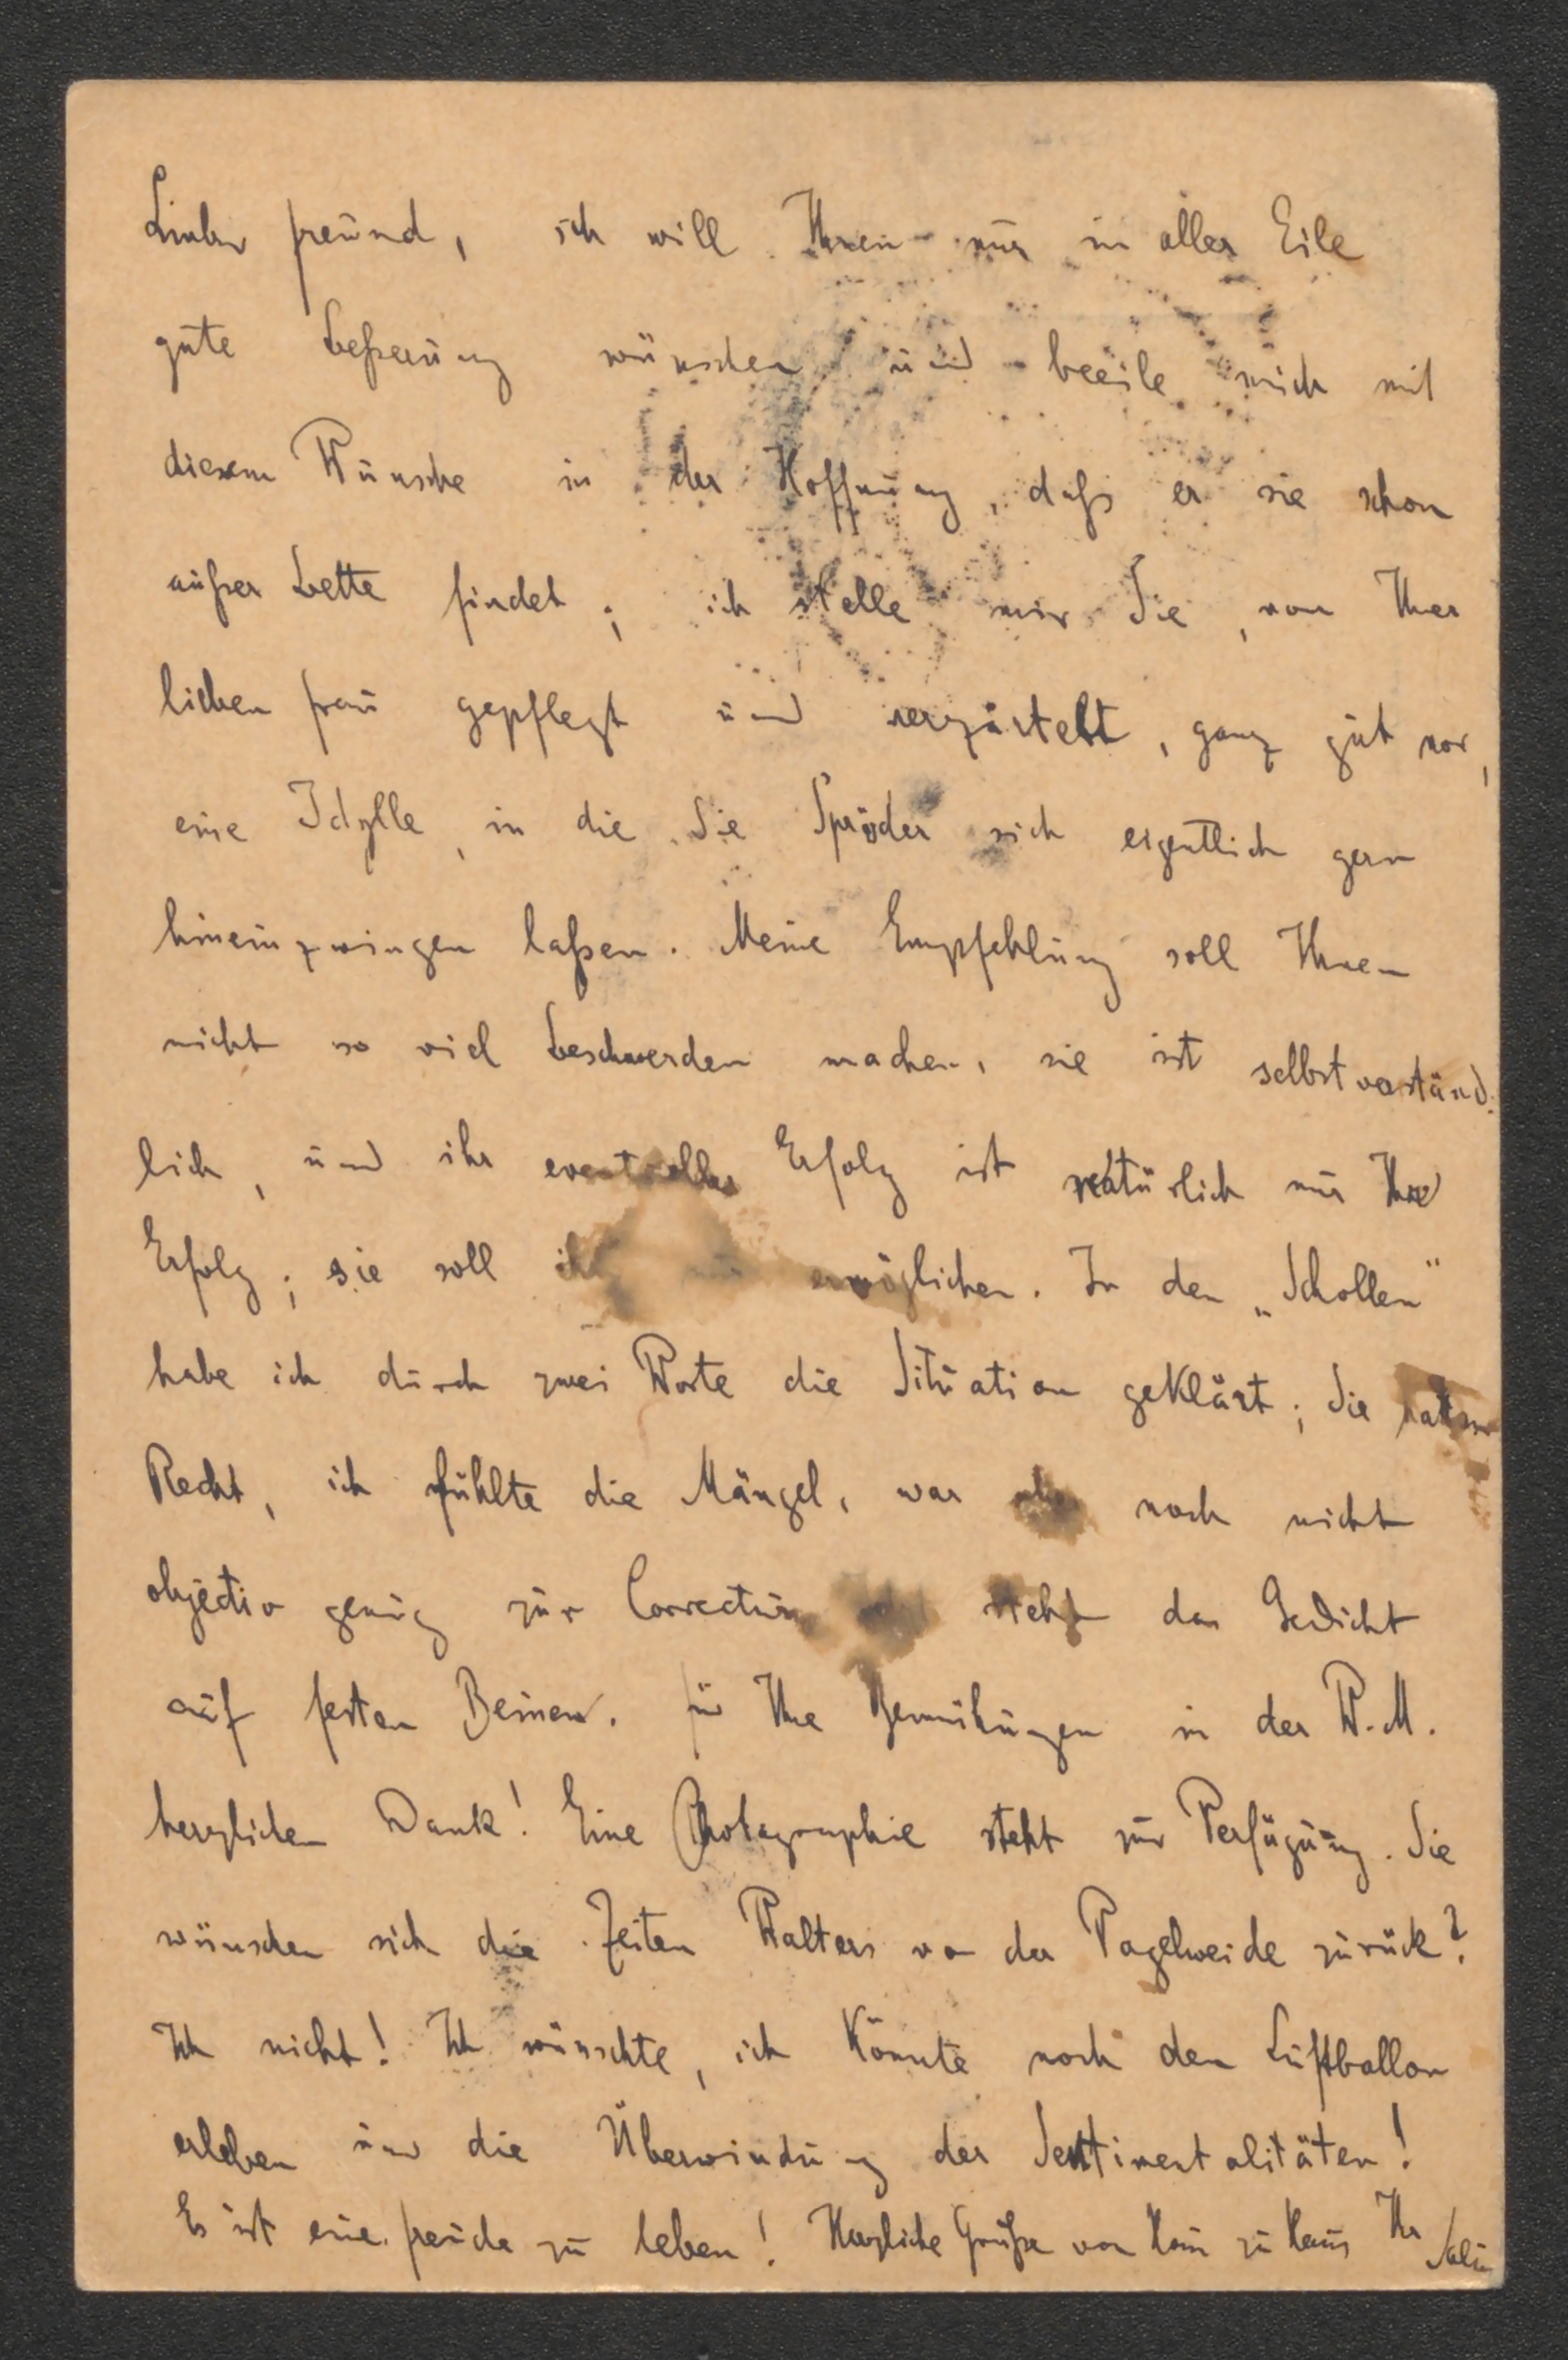 Lieber Freund, ich will Ihnen nur in aller Eile
gute Beßerung wünschen und beeile mich mit
diesem Wunsche in der Hoffnung, daß er sie schon
außer Bette findet; ich stelle mir Sie, von Ihrer
lieben Frau gepflegt und verzärtelt, ganz gut vor,
eine Idylle, in die Sie Spröder sich eigentlich gern
hineinzwingen laßen. Meine Empfehlung soll Ihnen
nicht so viel Beschwerden machen, sie ist selbstverständ-
lich, und ihr eventueller Erfolg ist natürlich nur Ihr
Erfolg; sie soll ihn nur ermöglichen. In den „Schollen"
habe ich durch zwei Worte die Situation geklärt; Sie hatten
Recht, ich fühlte die Mängel, war aber noch nicht
objectiv genug zur Correctur steht das Gedicht
auf festen Beinen. Für Ihre Bemühungen in der W.M.
herzlichen Dank! Eine Photographie steht zur Verfügung. Sie
wünschen sich die Zeiten Walters von der Vogelweide zurück?
Ich nicht! Ich wünschte, ich könnte noch den Luftballon
erleben und die Überwindung der Sentimentalitäten!
Es ist eine Freude zu leben! Herzliche Grüße von Haus zu Haus Ihr Salus